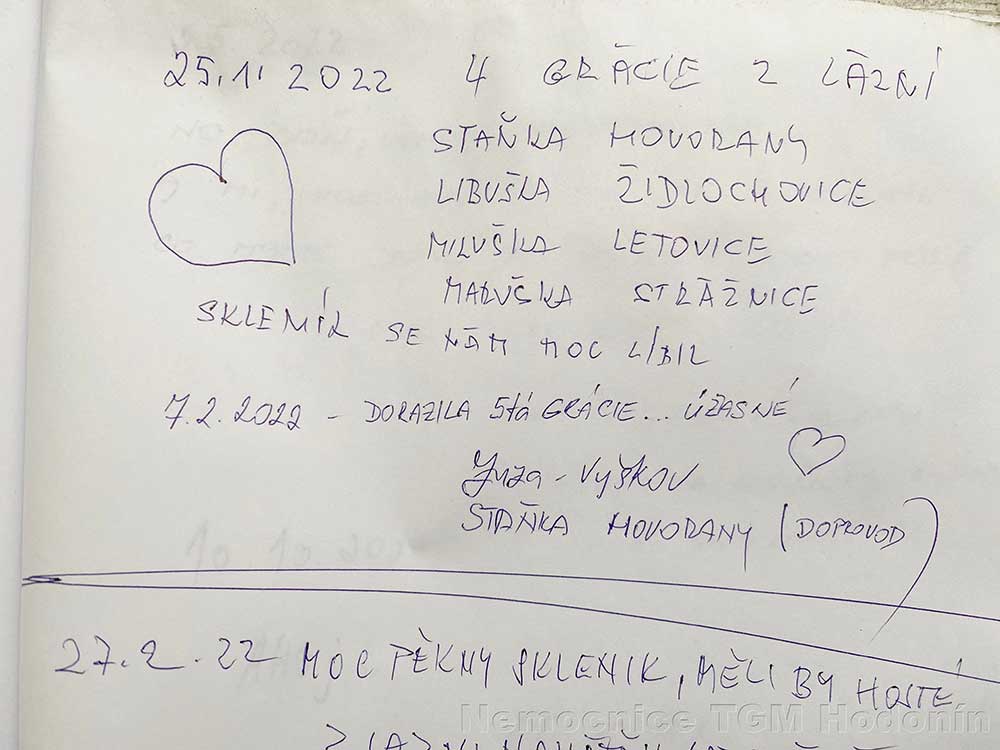 25.1. 2022 4 GRÁCIE Z LÁZNÍ
STAŇKA HOVORANY
LIBUŠKA ŽIDLOCHOVICE
MILUŠKA LETOVICE
MARUŠKA STRÁŽNICE
SKLENÍK SE NÁM MOC LÍBIL
7.2.2022 – DORAZILA 5tá GRÁCIE... ÚŽASNÉ
Yuza - VYŠKOV
STAŇKA HOVORANY (DOPROVOD)
27.2.22 MOC PĚKNÝ SKLENIK, MĚLI BY HOSTÉ
Z LÁZNÍ
Nemocnice TGM Hodonín